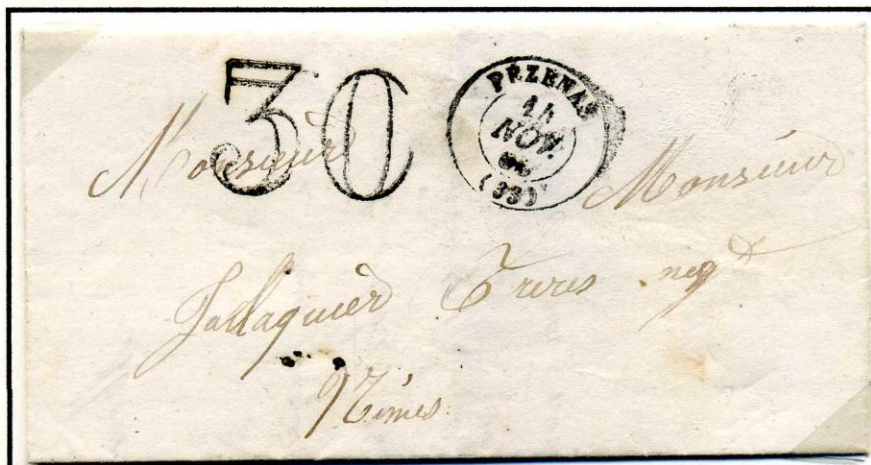 30
PEZENAS
NOV.
(33)
Monsieur Monsieur
Jallaguier Freres neg^t
Nimes